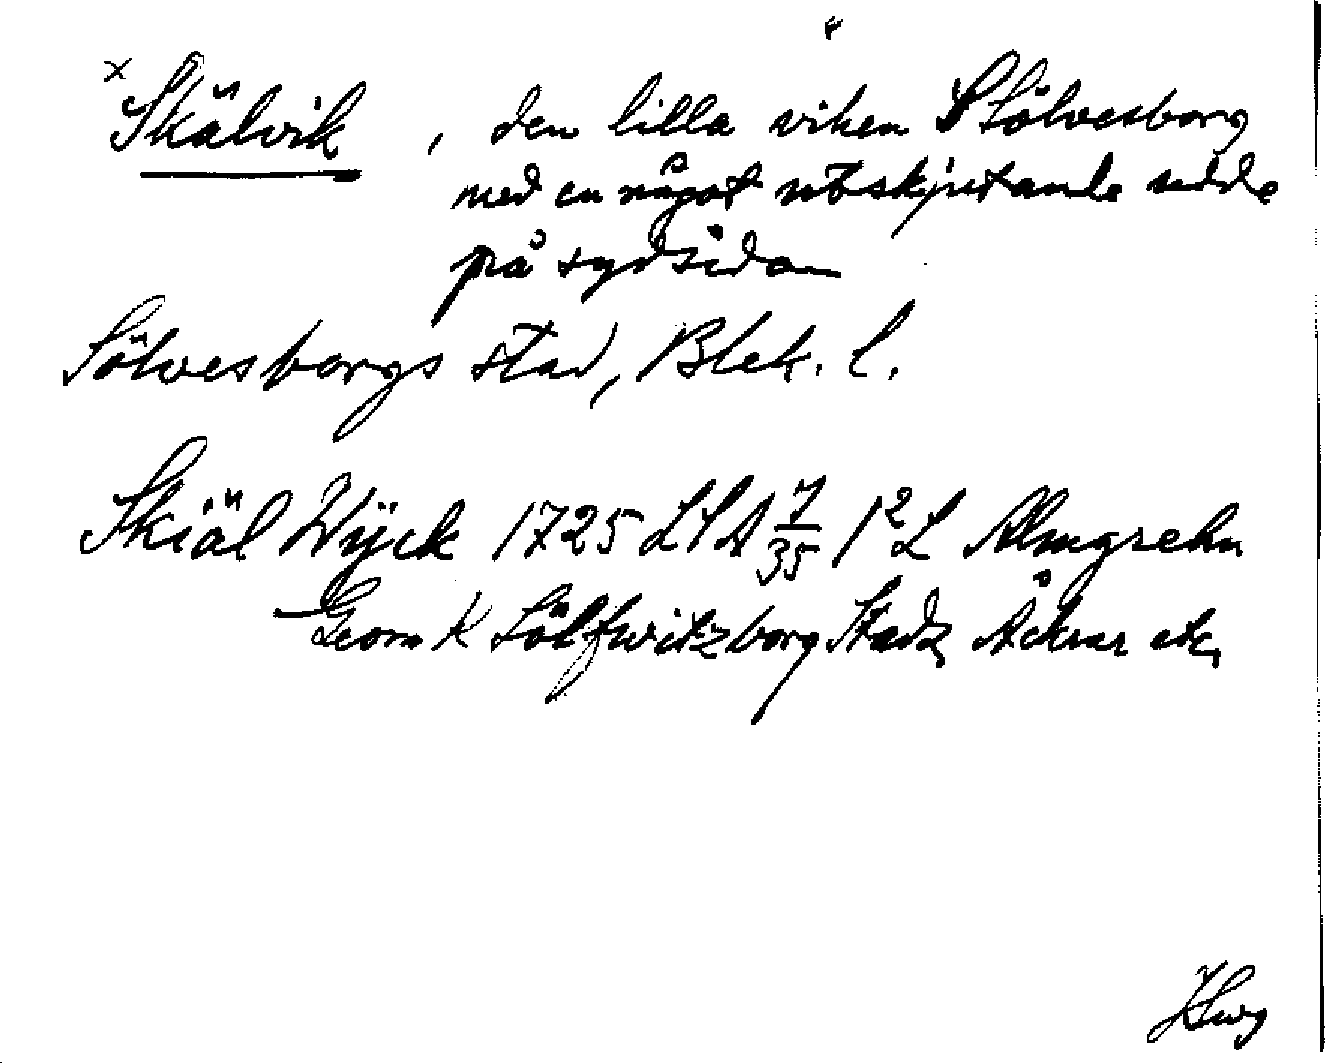 x Skälvik, den lilla viken S Sölvesborg
med en något utskjutande udde
på sydsidan
Sölvesborgs stad, Blek. l.
Skiäl Wÿck 1725 LSA 7/35 1² L Almgrehn
Geom K Sölfwitzborg Stadz Åkrar etc,